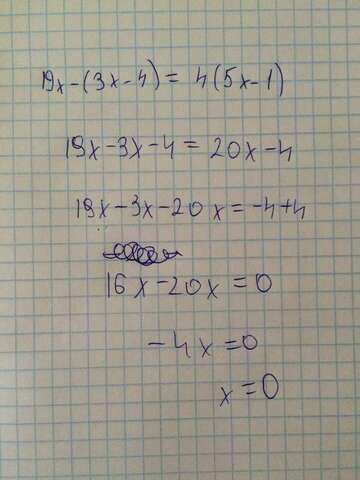 19x-(3x-4)= 4(5x-1)
19x-3x-4= 20x-4
19x-3x-20x=-4+4
16x-20x=0
-4x=0
x=0